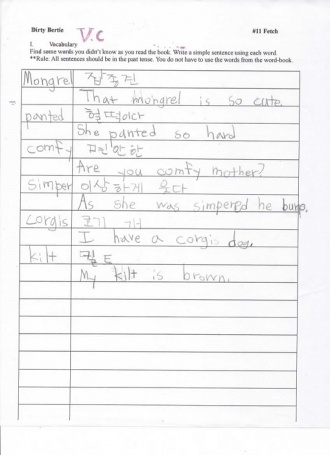 Dirty Bertie
#11 Fetch
V.C
I. Vocabulary
Find some words you didn't know as you read the book. Write a simple sentence using each word.
**Rule: All sentences should be in the past tense. You do not have to use the words from the word-book.
Mongrel 잡종견
That mongrel is so cute.
panted 헐떡이다
She panted so hard
comfy 편안한
Are you comfy mother?
Simper 이상하게 웃다
As she was simpered he
corgis
I have a corgis dog.
kilt 킬트
My kilt is brown.